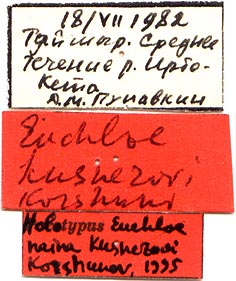 18/VII 1982
Таймыр. Среднее
течение р. Интo-
Кета
А.М. Пупавкин
Euchloe
kusnezovi
Korshunov
Holotypus Euchloe
naina Kusnezovi
Korshunov, 1995